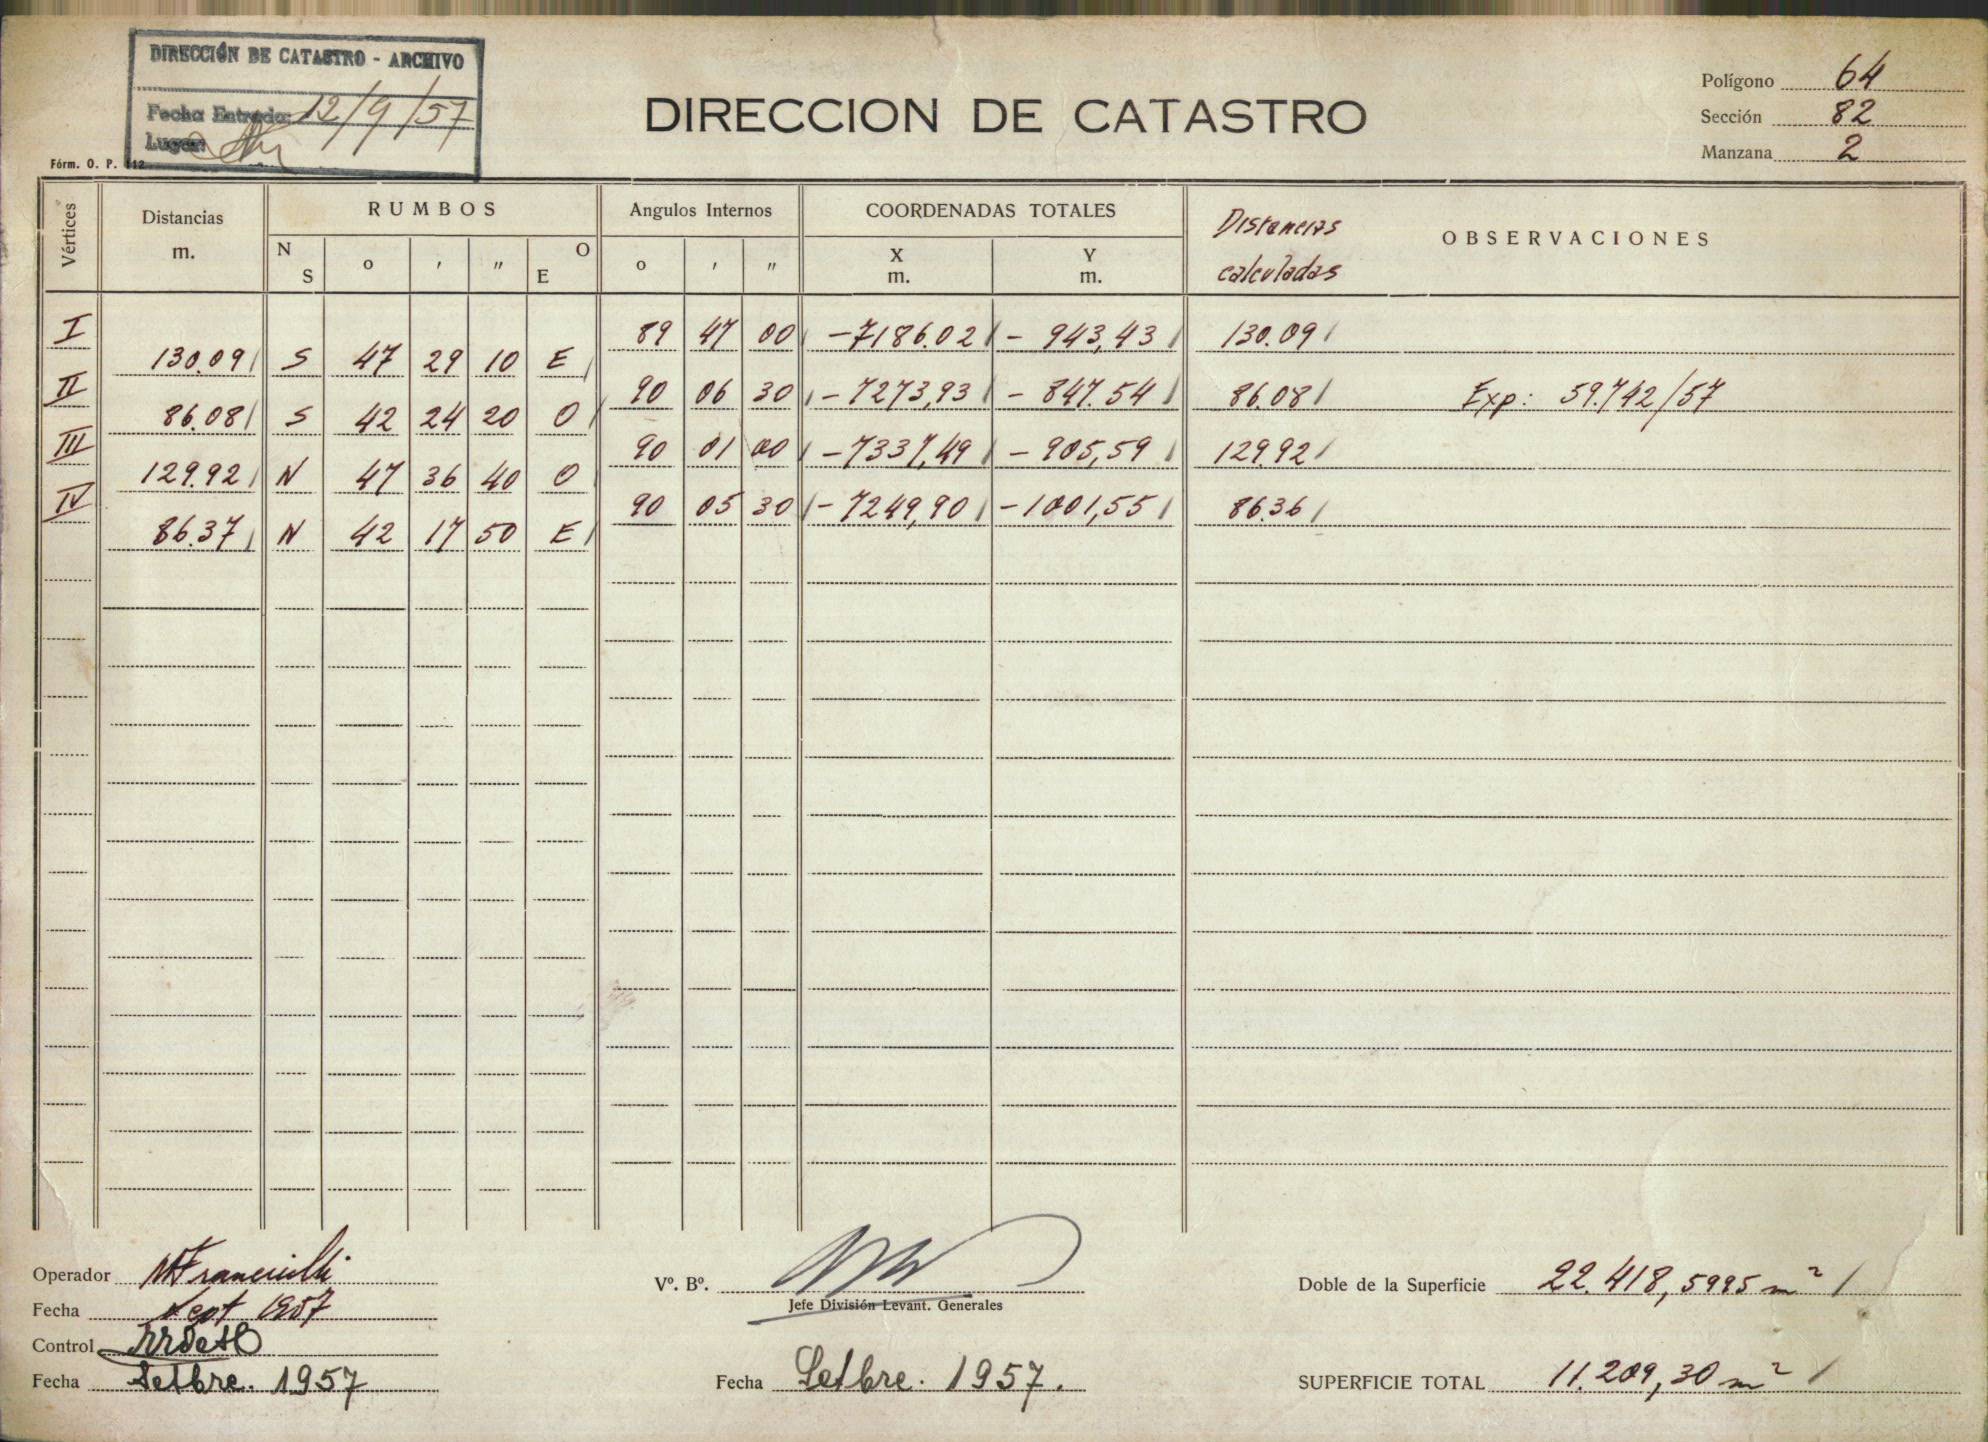 DIRECCIÓN DE CATASTRO - ARCHIVO
Fecha Entrada: 12/9/57
Lugar:
Fórm. O. P. 112
DIRECCION DE CATASTRO
Polígono 64
Sección 82
Manzana 2
Vértices Distancias m. RUMBOS N S o ′ ″ O E Angulos Internos o ′ ″ COORDENADAS TOTALES X m. Y m. Distancias calculadas OBSERVACIONES
I 89 47 00 -7186.02 - 943,43 130.09
130.09 S 47 29 10 E
II 90 06 30 -7273,93 - 847.54 86.08 Exp: 59.742/57
86.08 S 42 24 20 O
III 90 01 00 -7337,49 - 905,59 129.92
129.92 N 47 36 40 O
IV 90 05 30 -7249,90 -1001,55 86.36
86.37 N 42 17 50 E
Operador
Fecha Sept 1957
Control
Fecha Setbre. 1957
Vº. Bº.
Jefe División Levant. Generales
Fecha Setbre. 1957.
Doble de la Superficie 22.418,5995 m²
SUPERFICIE TOTAL 11.209,30 m²